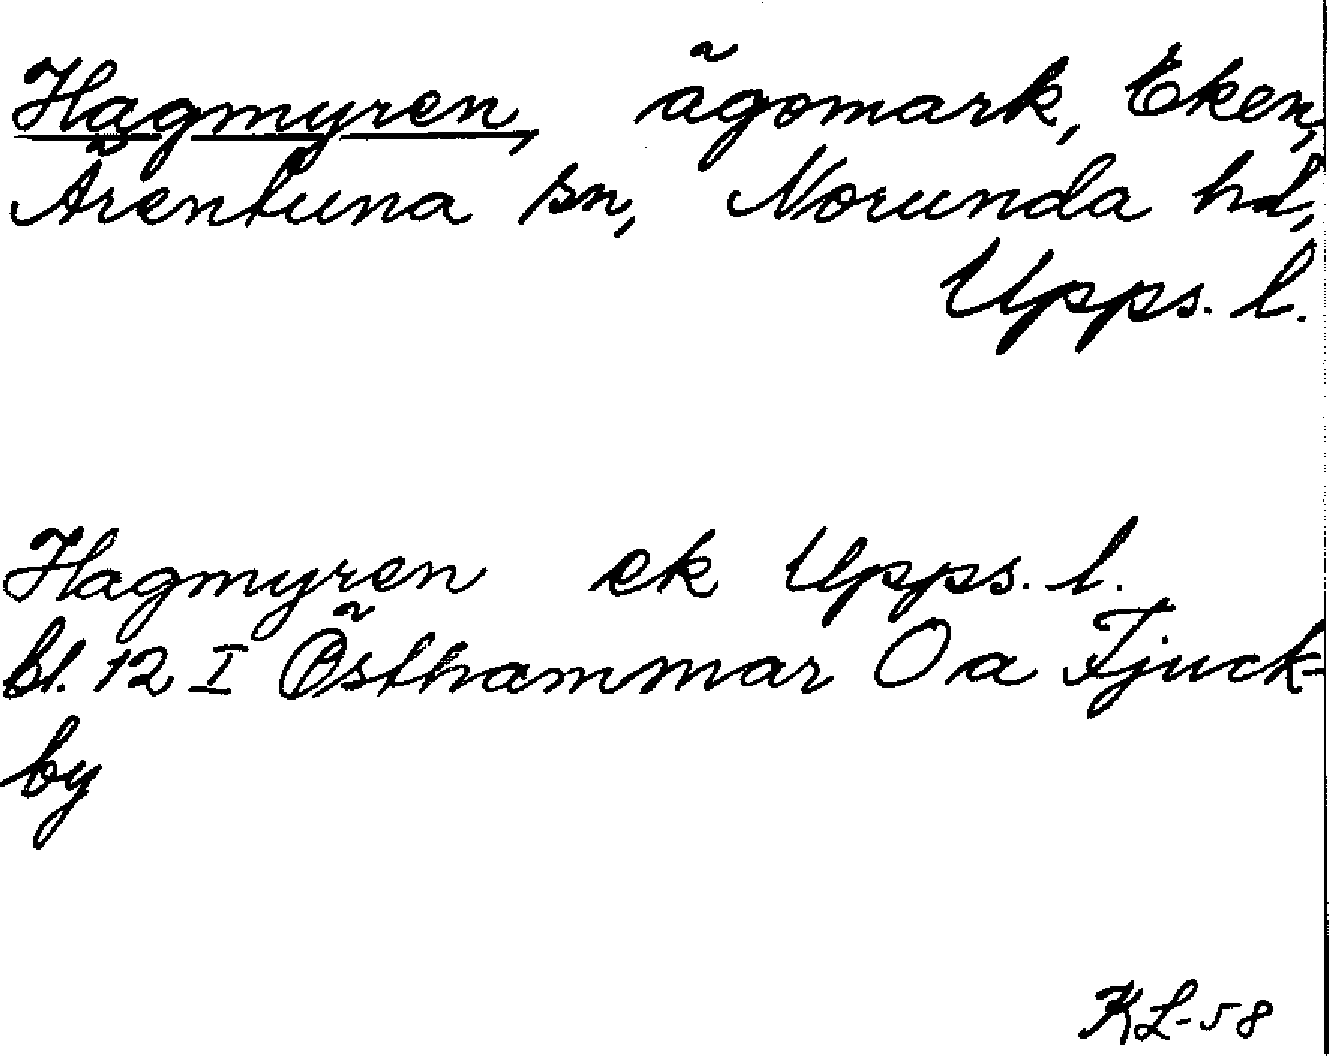 Hagmyren, ägomark, Eken,
Ärentuna sn, Norunda hd,
Upps. l.
Hagmyren ek Upps. l.
bl. 12 I Östhammar Oa Fjuck-
by
KL-58